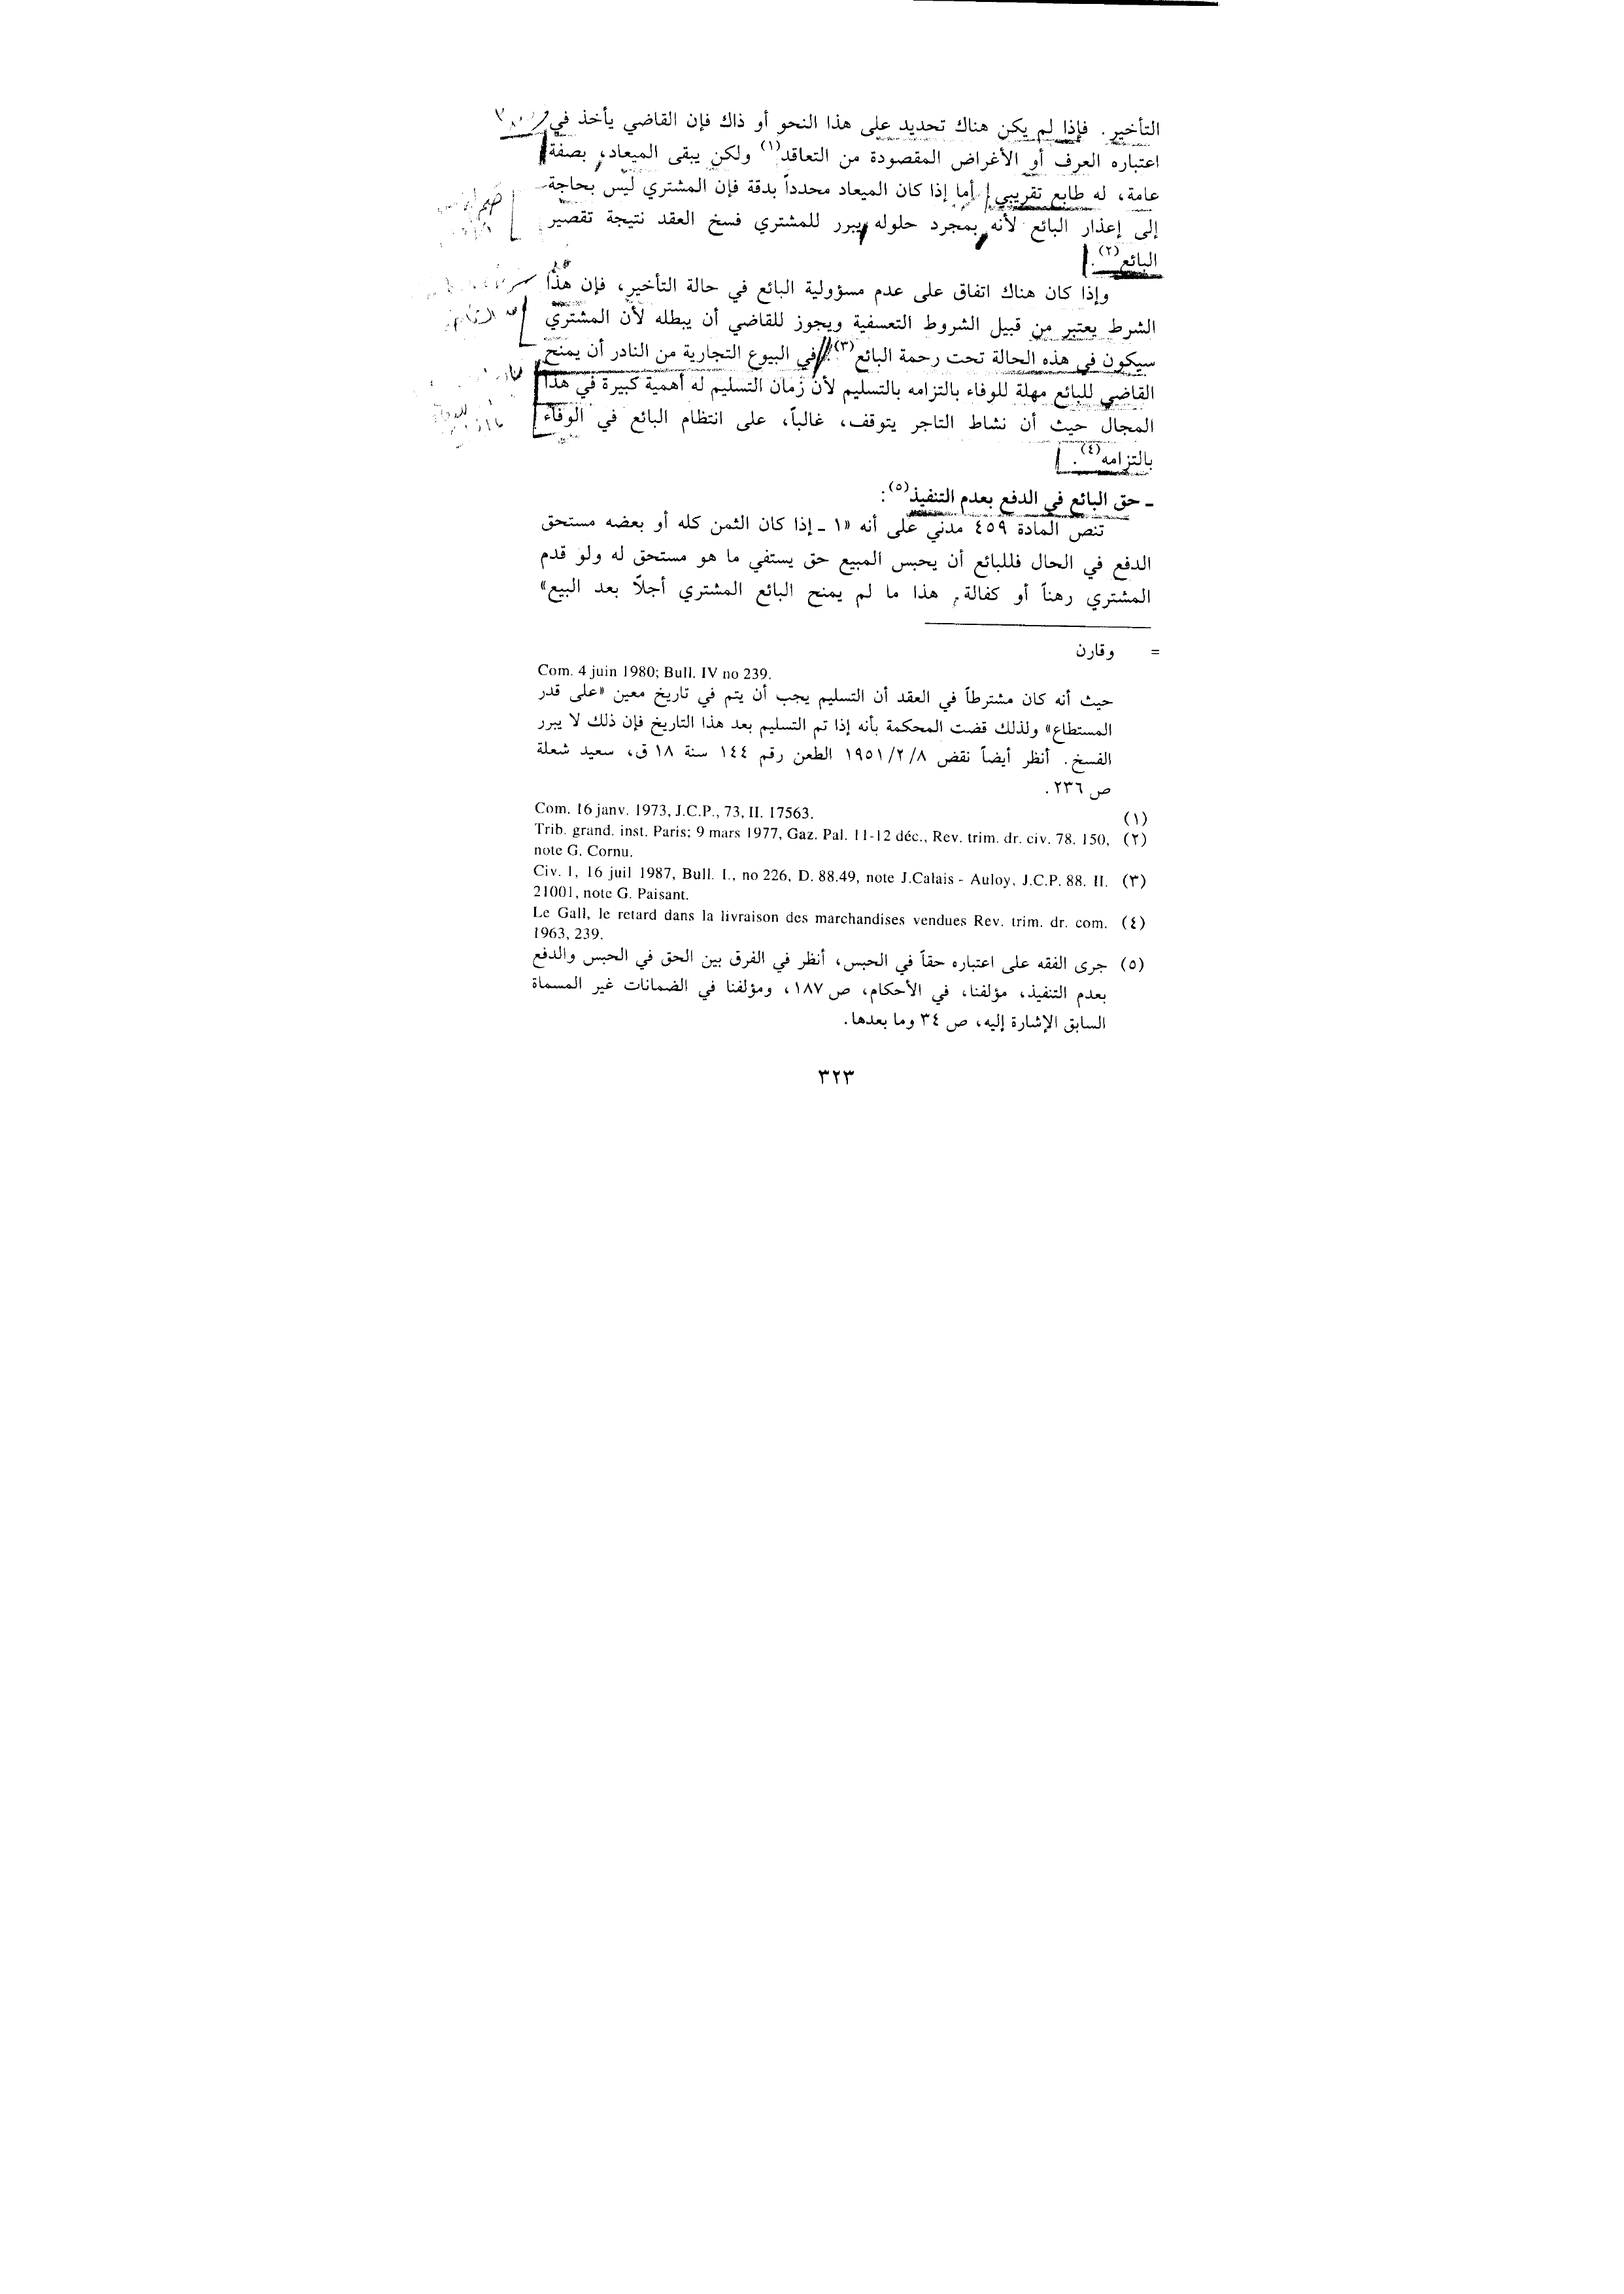 التأخير. فإذا لم يكن هناك تحديد على هذا النحو أو ذاك فإن القاضي يأخذ في
اعتباره العرف أو الأغراض المقصودة من التعاقد(١) ولكن يبقى الميعاد، بصفة
عامة، له طابع تقريبي. أما إذا كان الميعاد محدداً بدقة فإن المشتري ليس بحاجة
إلى إعذار البائع لأنه بمجرد حلوله يبرر للمشتري فسخ العقد نتيجة تقصير
البائع(٢).
وإذا كان هناك اتفاق على عدم مسؤولية البائع في حالة التأخير، فإن هذا
الشرط يعتبر من قبيل الشروط التعسفية ويجوز للقاضي أن يبطله لأن المشتري
سيكون في هذه الحالة تحت رحمة البائع(٣). في البيوع التجارية من النادر أن يمنح
القاضي للبائع مهلة للوفاء بالتزامه بالتسليم لأن زمان التسليم له أهمية كبيرة في هذا
المجال حيث أن نشاط التاجر يتوقف، غالباً، على انتظام البائع في الوفاء
بالتزامه(٤).
ـ حق البائع في الدفع بعدم التنفيذ(٥):
تنص المادة ٤٥٩ مدني على أنه «١ ـ إذا كان الثمن كله أو بعضه مستحق
الدفع في الحال فللبائع أن يحبس المبيع حق يستفي ما هو مستحق له ولو قدم
المشتري رهناً أو كفالة, هذا ما لم يمنح البائع المشتري أجلاً بعد البيع»
= وقارن
Com. 4 juin 1980; Bull. IV no 239.
حيث أنه كان مشترطاً في العقد أن التسليم يجب أن يتم في تاريخ معين «على قدر
المستطاع» ولذلك قضت المحكمة بأنه إذا تم التسليم بعد هذا التاريخ فإن ذلك لا يبرر
الفسخ. أنظر أيضاً نقض ١٩٥١/٢/٨ الطعن رقم ١٤٤ سنة ١٨ ق، سعيد شعلة
ص ٢٣٦.
(١) Com. 16 janv. 1973, J.C.P., 73, II. 17563.
(٢) Trib. grand. inst. Paris; 9 mars 1977, Gaz. Pal. 11-12 déc., Rev. trim. dr. civ. 78. 150,
note G. Cornu.
(٣) Civ. 1, 16 juil 1987, Bull. I., no 226, D. 88.49, note J.Calais - Auloy, J.C.P. 88. II.
21001, note G. Paisant.
(٤) Le Gall, le retard dans la livraison des marchandises vendues Rev. trim. dr. com.
1963, 239.
(٥) جرى الفقه على اعتباره حقاً في الحبس، أنظر في الفرق بين الحق في الحبس والدفع
بعدم التنفيذ، مؤلفنا، في الأحكام، ص ١٨٧، ومؤلفنا في الضمانات غير المسماة
السابق الإشارة إليه، ص ٣٤ وما بعدها.
٣٢٣